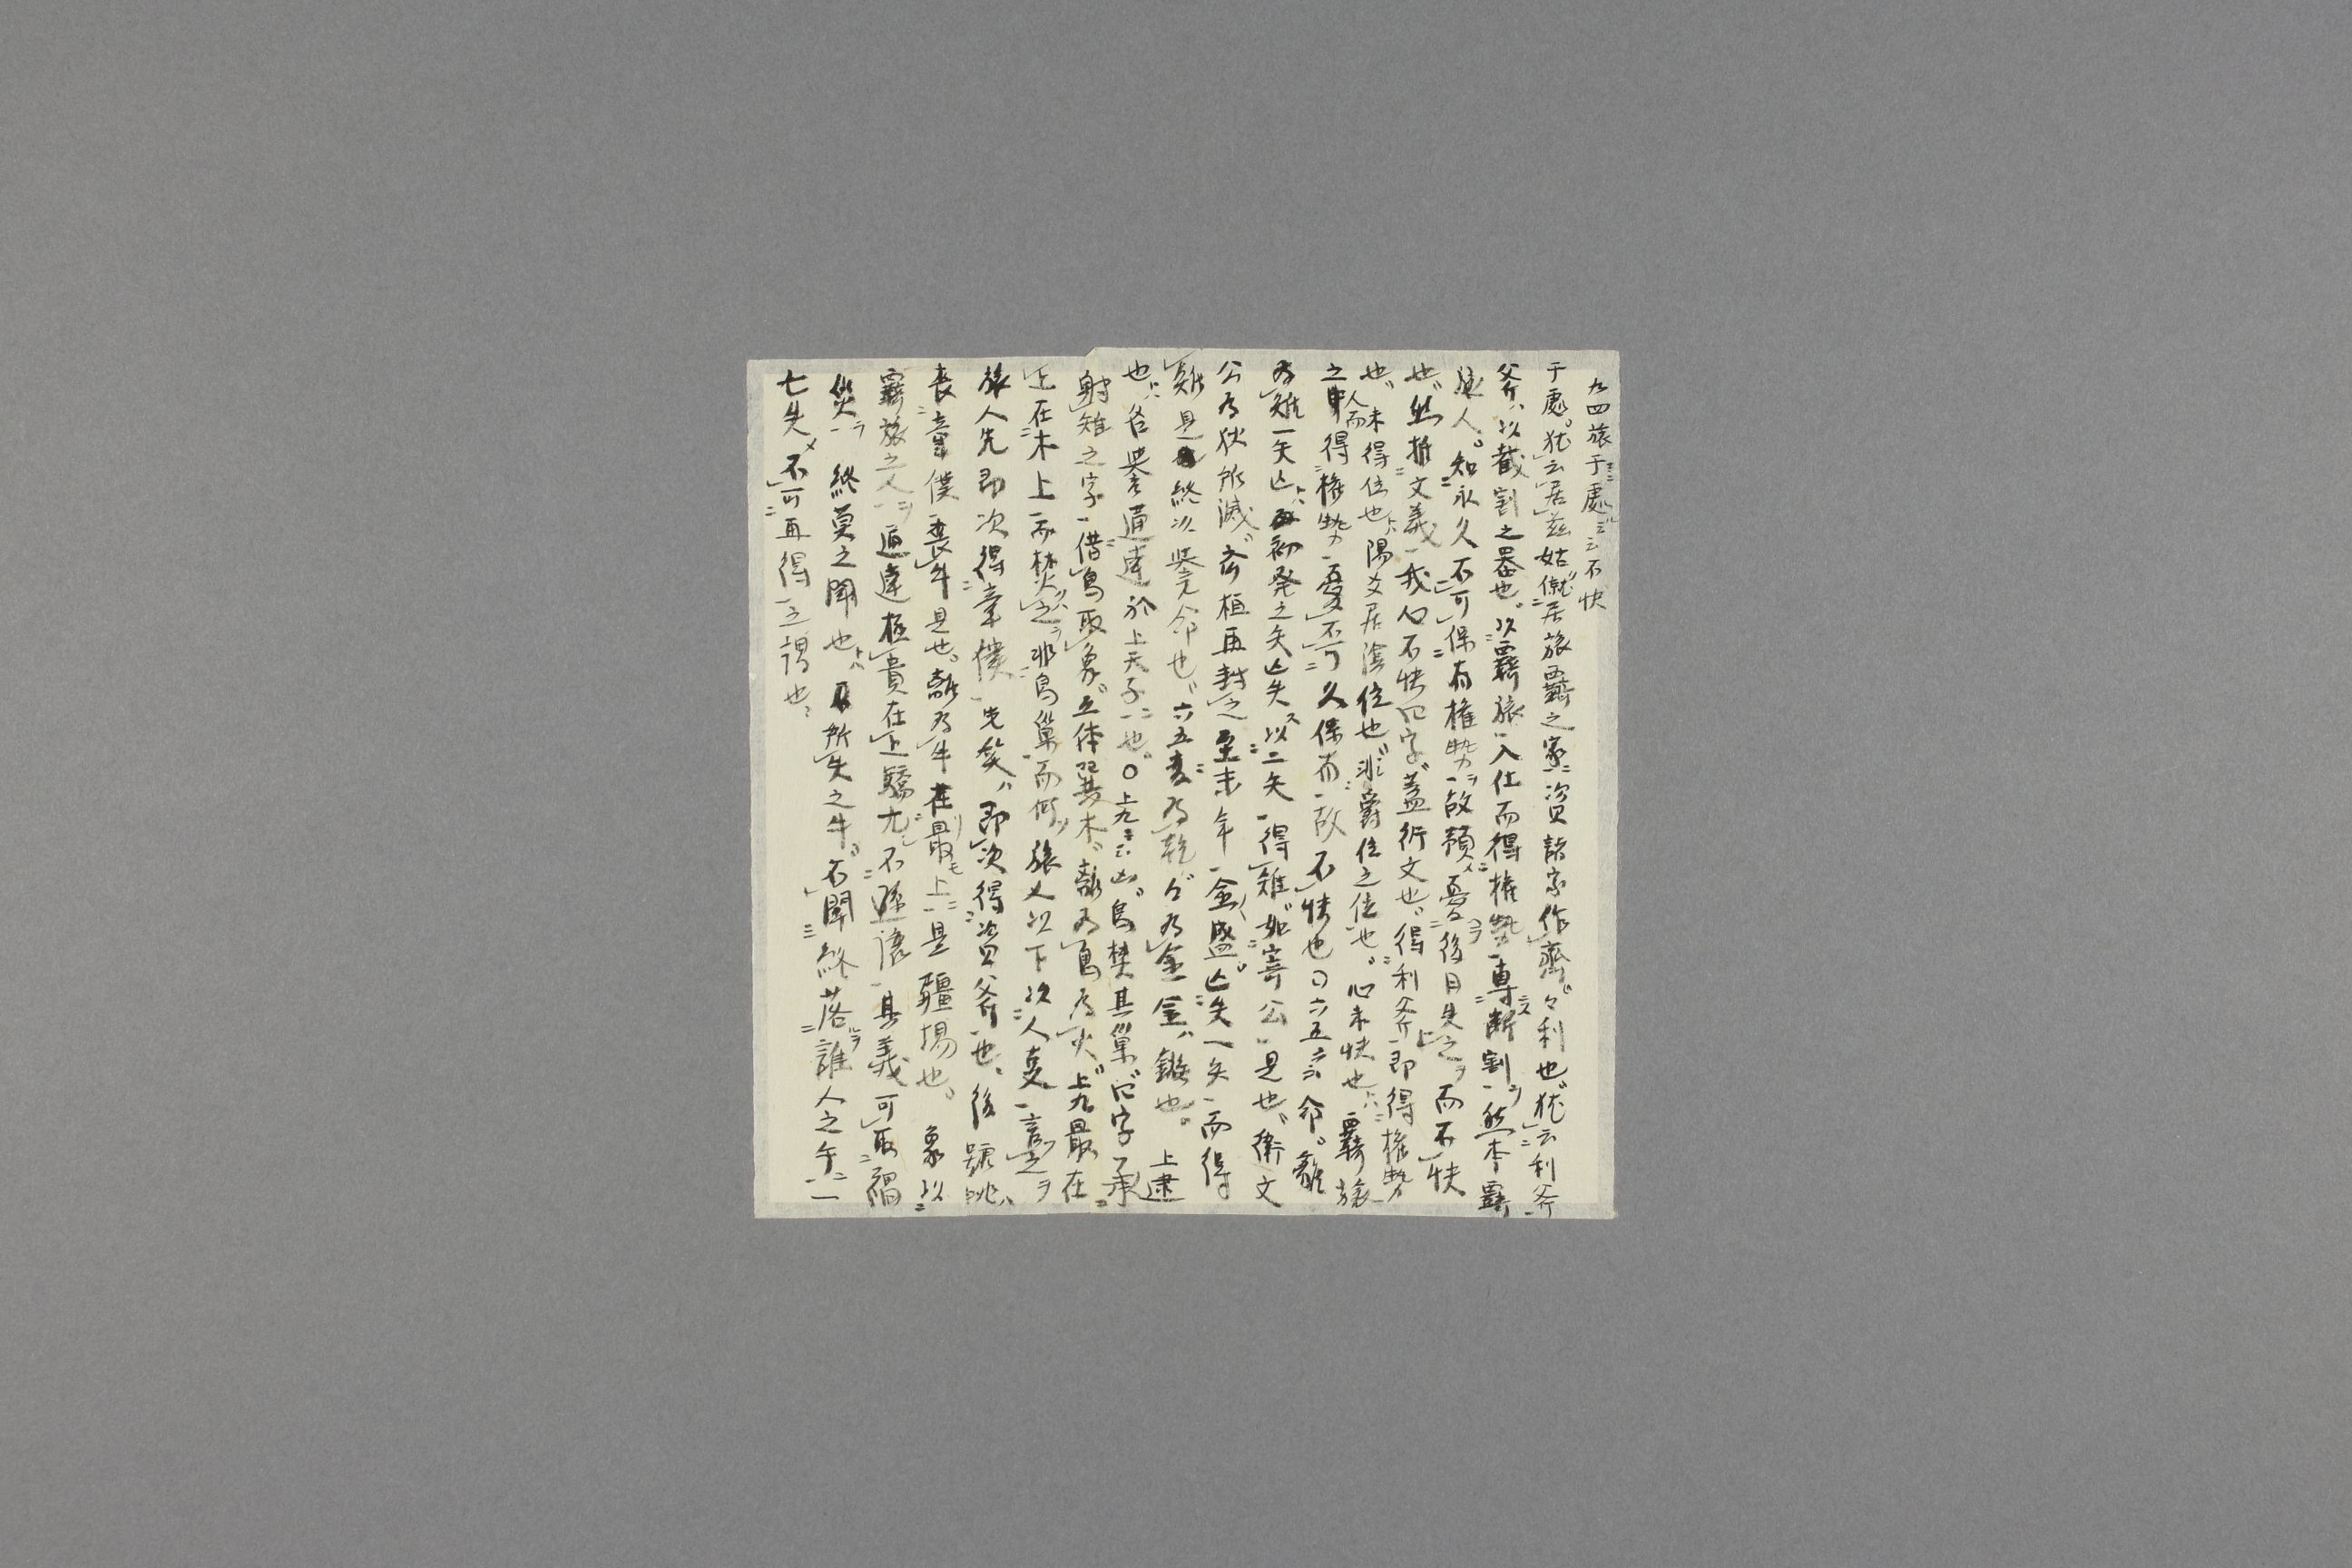 九四旅于處云云不快
于處。犹云居茲姑僦居旅羈之家資諸家作齊。々利也犹云利斧
斧、以截割之器也。以羈旅入仕而得権勢専断割然本羈
旅人。知永久不可保有権勢故頻憂後日失之而不快
也然推文義我心不快四字蓋衍文也。得利斧即得権勢
也未得位也陽爻居陰位也非爵位之位也。心未快也羈旅
之人而得権勢憂不可久保有故不快也〇六五云云命。離
為雉一矢亡初発之矢亡失以二矢得雉如寄公是也衛文
公為狄所滅斉桓再封之至末年全盛。亡失一矢而得
雉是終以誉命也六五変為乾乾為金金、鏃也。上逮
也名誉通達於上天子也。〇上九云云凶。鳥焚其巣四字承
射雉之字借鳥取象互体巽木離為鳥為火上九最在
上在木上而焚之非鳥巣而何旅人以下以人事言之
旅人先即次得童僕先笑、即次得資斧也、後號咷、
喪童僕喪牛是也。離為牛在最上是疆場也。象以
羈旅之人通達極貴在上驕亢不遜譲其義可取禍
災終莫之聞也所失之牛不聞終落誰人之手一
七失不可再得之謂也、